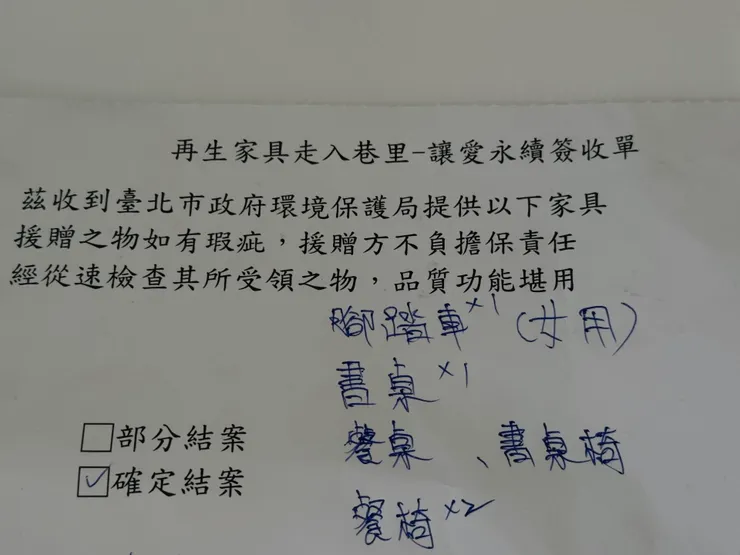 再生家具走入巷里-讓愛永續簽收單
茲收到臺北市政府環境保護局提供以下家具
援贈之物如有瑕疵，援贈方不負擔保責任
經從速檢查其所受領之物，品質功能堪用
腳踏車×1（女用）
書桌×1
□部分結案
餐桌、書桌椅
☑確定結案
餐椅×2